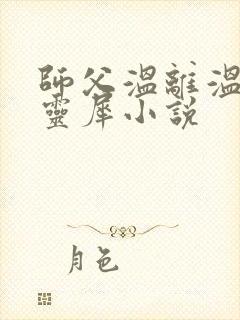 師父溫離溫
靈犀小說
月色